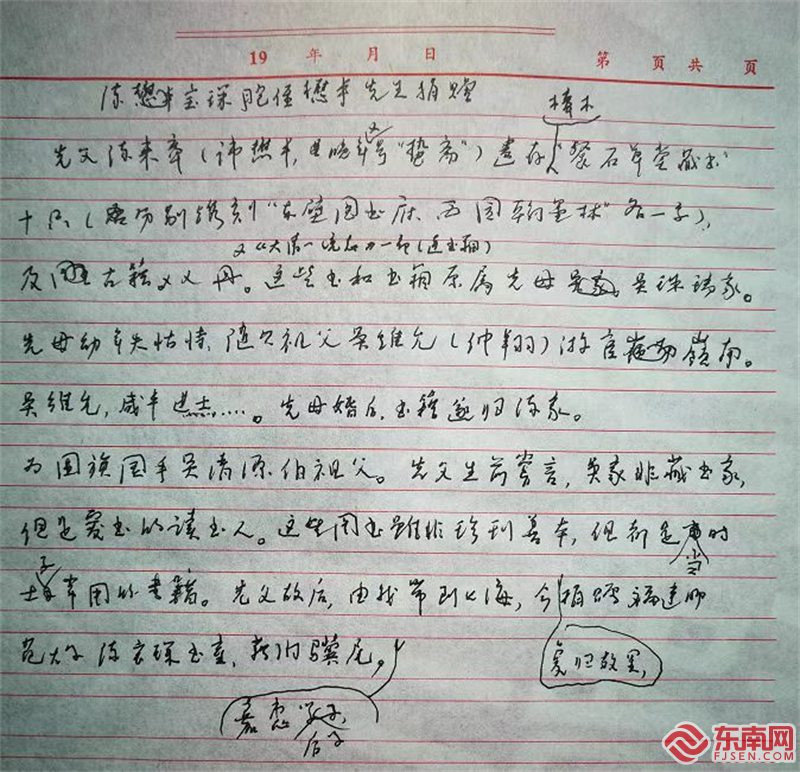 19 年 月 日
第 页 共 页
陈懋 宝琛胞侄懋丰先生捐赠
樟木
先父陈来章(讳懋丰,又号"墊斋")遗存"磐石草堂藏书"
十只(别镌刻"东壁图书府、西园翰墨林"各一字),
又《大清一统志》一部(连书箱)
及古籍XX册。这些书和书箱原属先母吴珠璃家。
先母幼年失怙恃,随祖父吴维允(仲翔)游宦岭南。
吴维允,咸丰进士……。先母婚后,书籍遂归陈家。
为围棋国手吴清源伯祖父。先父生前尝言,吴家非藏书家,
但是爱书的读书人。这些图书虽非珍刊善本,但都是当时
士子常用的书籍。先父故后,由我带到上海,今捐赠福建师
复归故里,
范大学陈宝琛书室,附骥尾。
嘉惠学子
后学
东南网
FJSEN.COM